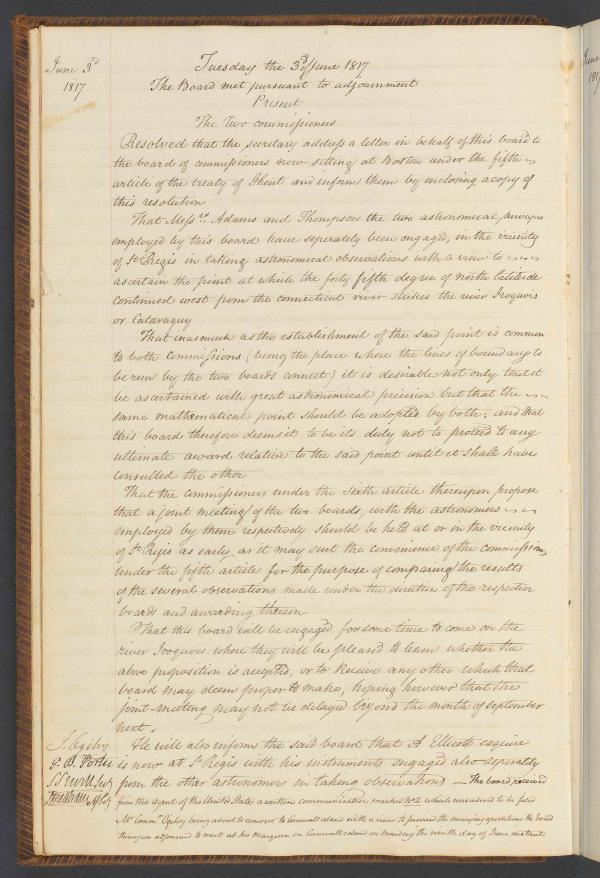 June 3d
1817
Tuesday the 3d of June 1817
The Board met pursuant to adjournment
Present
The Two commissioners
Resolved that the secretary address a letter in behalf of this board to
the board of commissioners now sitting at Boston under the fifth
article of the treaty of Ghent and inform them by enclosing a copy of
this resolution
That Messrs. Adams and Thompson the two astronomical surveyors
employed by this board have seperately been engaged, in the vicinity
of St Regis in taking astronomical observations with a view to
ascertain the point at which the forty fifth degree of north latitude
continued west from the connecticut river strikes the river Iroquois
or Cataraquy
That inasmuch as the establishment of the said point is common
to both Commissions (being the place where the lines of boundary to
be run by the two boards connect) it is desirable not only that it
be ascertained with great astronomical precision but that the
same mathematical point should be adopted by both; and that
this board therefore deems it to be its duty not to proceed to any
ultimate award relative to the said point until it shall have
consulted the other
That the commissioners under the sixth article thereupon propose
that a joint meeting of the two boards, with the astronomers
employed by them respectively should be held at or in the vicinity
of St Regis as early as it may suit the convenience of the commissioners
under the fifth article for the purpose of comparing the results
of the several observations made under the direction of the respective
boards and awarding thereon
That this board will be engaged for some time to come on the
river Iroquois where they will be pleased to learn whether the
above proposition is accepted, or to Receive any other which that
board may deem proper to make, hoping however that the
joint-meeting may not be delayed beyond the month of september
next.
He will also inform the said board that A Ellicott esquire
is now at St Regis with his instruments engaged also seperately
from the other astronomers in taking observations — The board received
from the Agent of the United States a written communication marked No 2 which was ordered to be filed
Mr Commr Ogilvy being about to remove to Cornwall island with a view to forward the surveying operations the board
thereupon adjourned to meet at his Marquee on Cornwall island on Monday the ninth day of June instant
J. Ogilvy
P. B. Porter